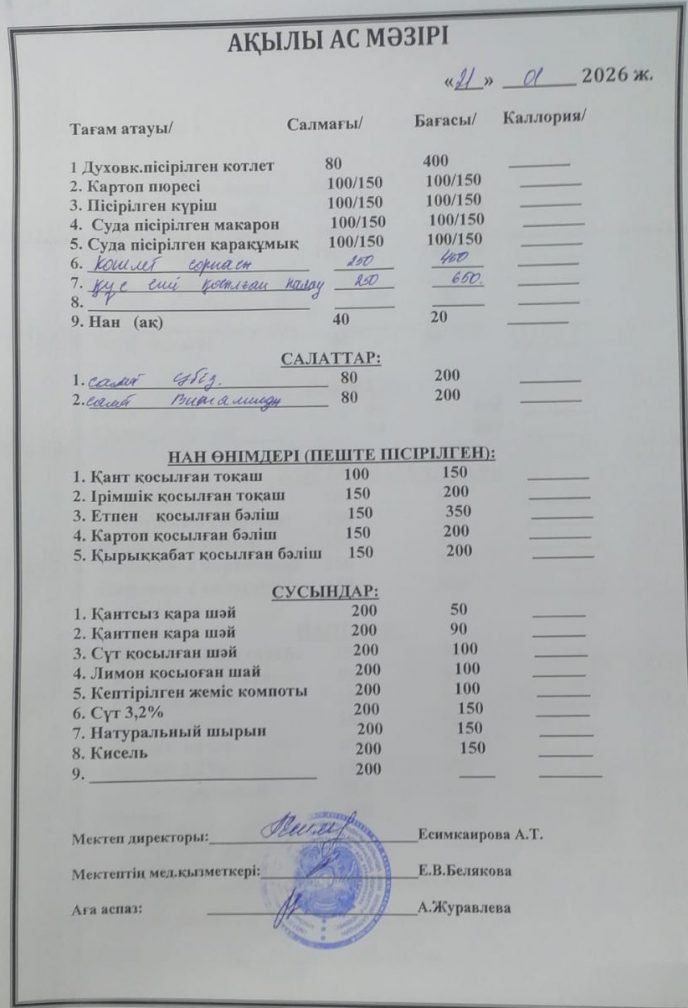 АҚЫЛЫ АС МӘЗІРІ
«21» 01 2026 ж.
Тағам атауы/ Салмағы/ Бағасы/ Каллория/
1 Духовк.пісірілген котлет 80 400
2. Картоп пюресі 100/150 100/150
3. Пісірілген күріш 100/150 100/150
4. Суда пісірілген макарон 100/150 100/150
5. Суда пісірілген қарақұмық 100/150 100/150
6. сорпасы 250 400
7. Құс еті қосылған палау 250 650.
8.
9. Нан (ақ) 40 20
САЛАТТАР:
1. салат 80 200
2. салат Витаминді 80 200
НАН ӨНІМДЕРІ (ПЕШТЕ ПІСІРІЛГЕН):
1. Қант қосылған тоқаш 100 150
2. Ірімшік қосылған тоқаш 150 200
3. Етпен қосылған бәліш 150 350
4. Картоп қосылған бәліш 150 200
5. Қырыққабат қосылған бәліш 150 200
СУСЫНДАР:
1. Қантсыз қара шәй 200 50
2. Қантпен қара шәй 200 90
3. Сүт қосылған шәй 200 100
4. Лимон қосыоған шай 200 100
5. Кептірілген жеміс компоты 200 100
6. Сүт 3,2% 200 150
7. Натуральный шырын 200 150
8. Кисель 200 150
9. 200
Мектеп директоры: Есимкаирова А.Т.
Мектептің мед.қызметкері: Е.В.Белякова
Аға аспаз: А.Журавлева